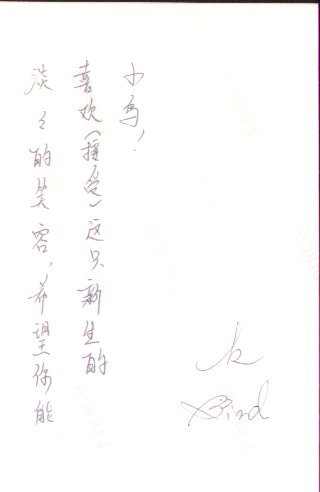 淡々的笑容，希望你能
喜欢(接受)这只新生的
小鸟！
k
Bird